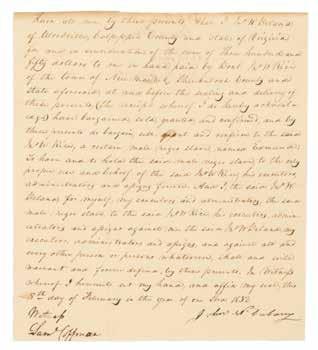 Know all men by these presents that I Jno W
of Woodville, Culpeper County and State of Virginia
for and in consideration of the sum of three hundred and
fifty dollars to me in hand paid by
of the town of New Market, Shenandoah County and
State aforesaid at and before the sealing and delivery of
these presents, (the receipt whereof I do hereby acknowl
edge) have bargained, sold, granted and confirmed, and by
these presents do bargain, sell, grant and confirm to the said
Jno W Rice, a certain male negro slave, named
to have and to hold the said male negro slave to the only
proper use and behoof, of the said Jno W Rice, his executors,
administrators and assigns forever. And I, the said Jno W
for myself, my executors and administrators, the said
male negro slave, to the said Jno W Rice his executors, admin
istrators and assigns against me the said Jno W
executors, administrators and assigns, and against all and
every other person or persons whatsoever, shall and will
warrant and forever defend, by these presents. In Witness
whereof I hereunto set my hand, and affix my seal, this
8th day of February in the year of our Lord
Witness
Saml Coffman